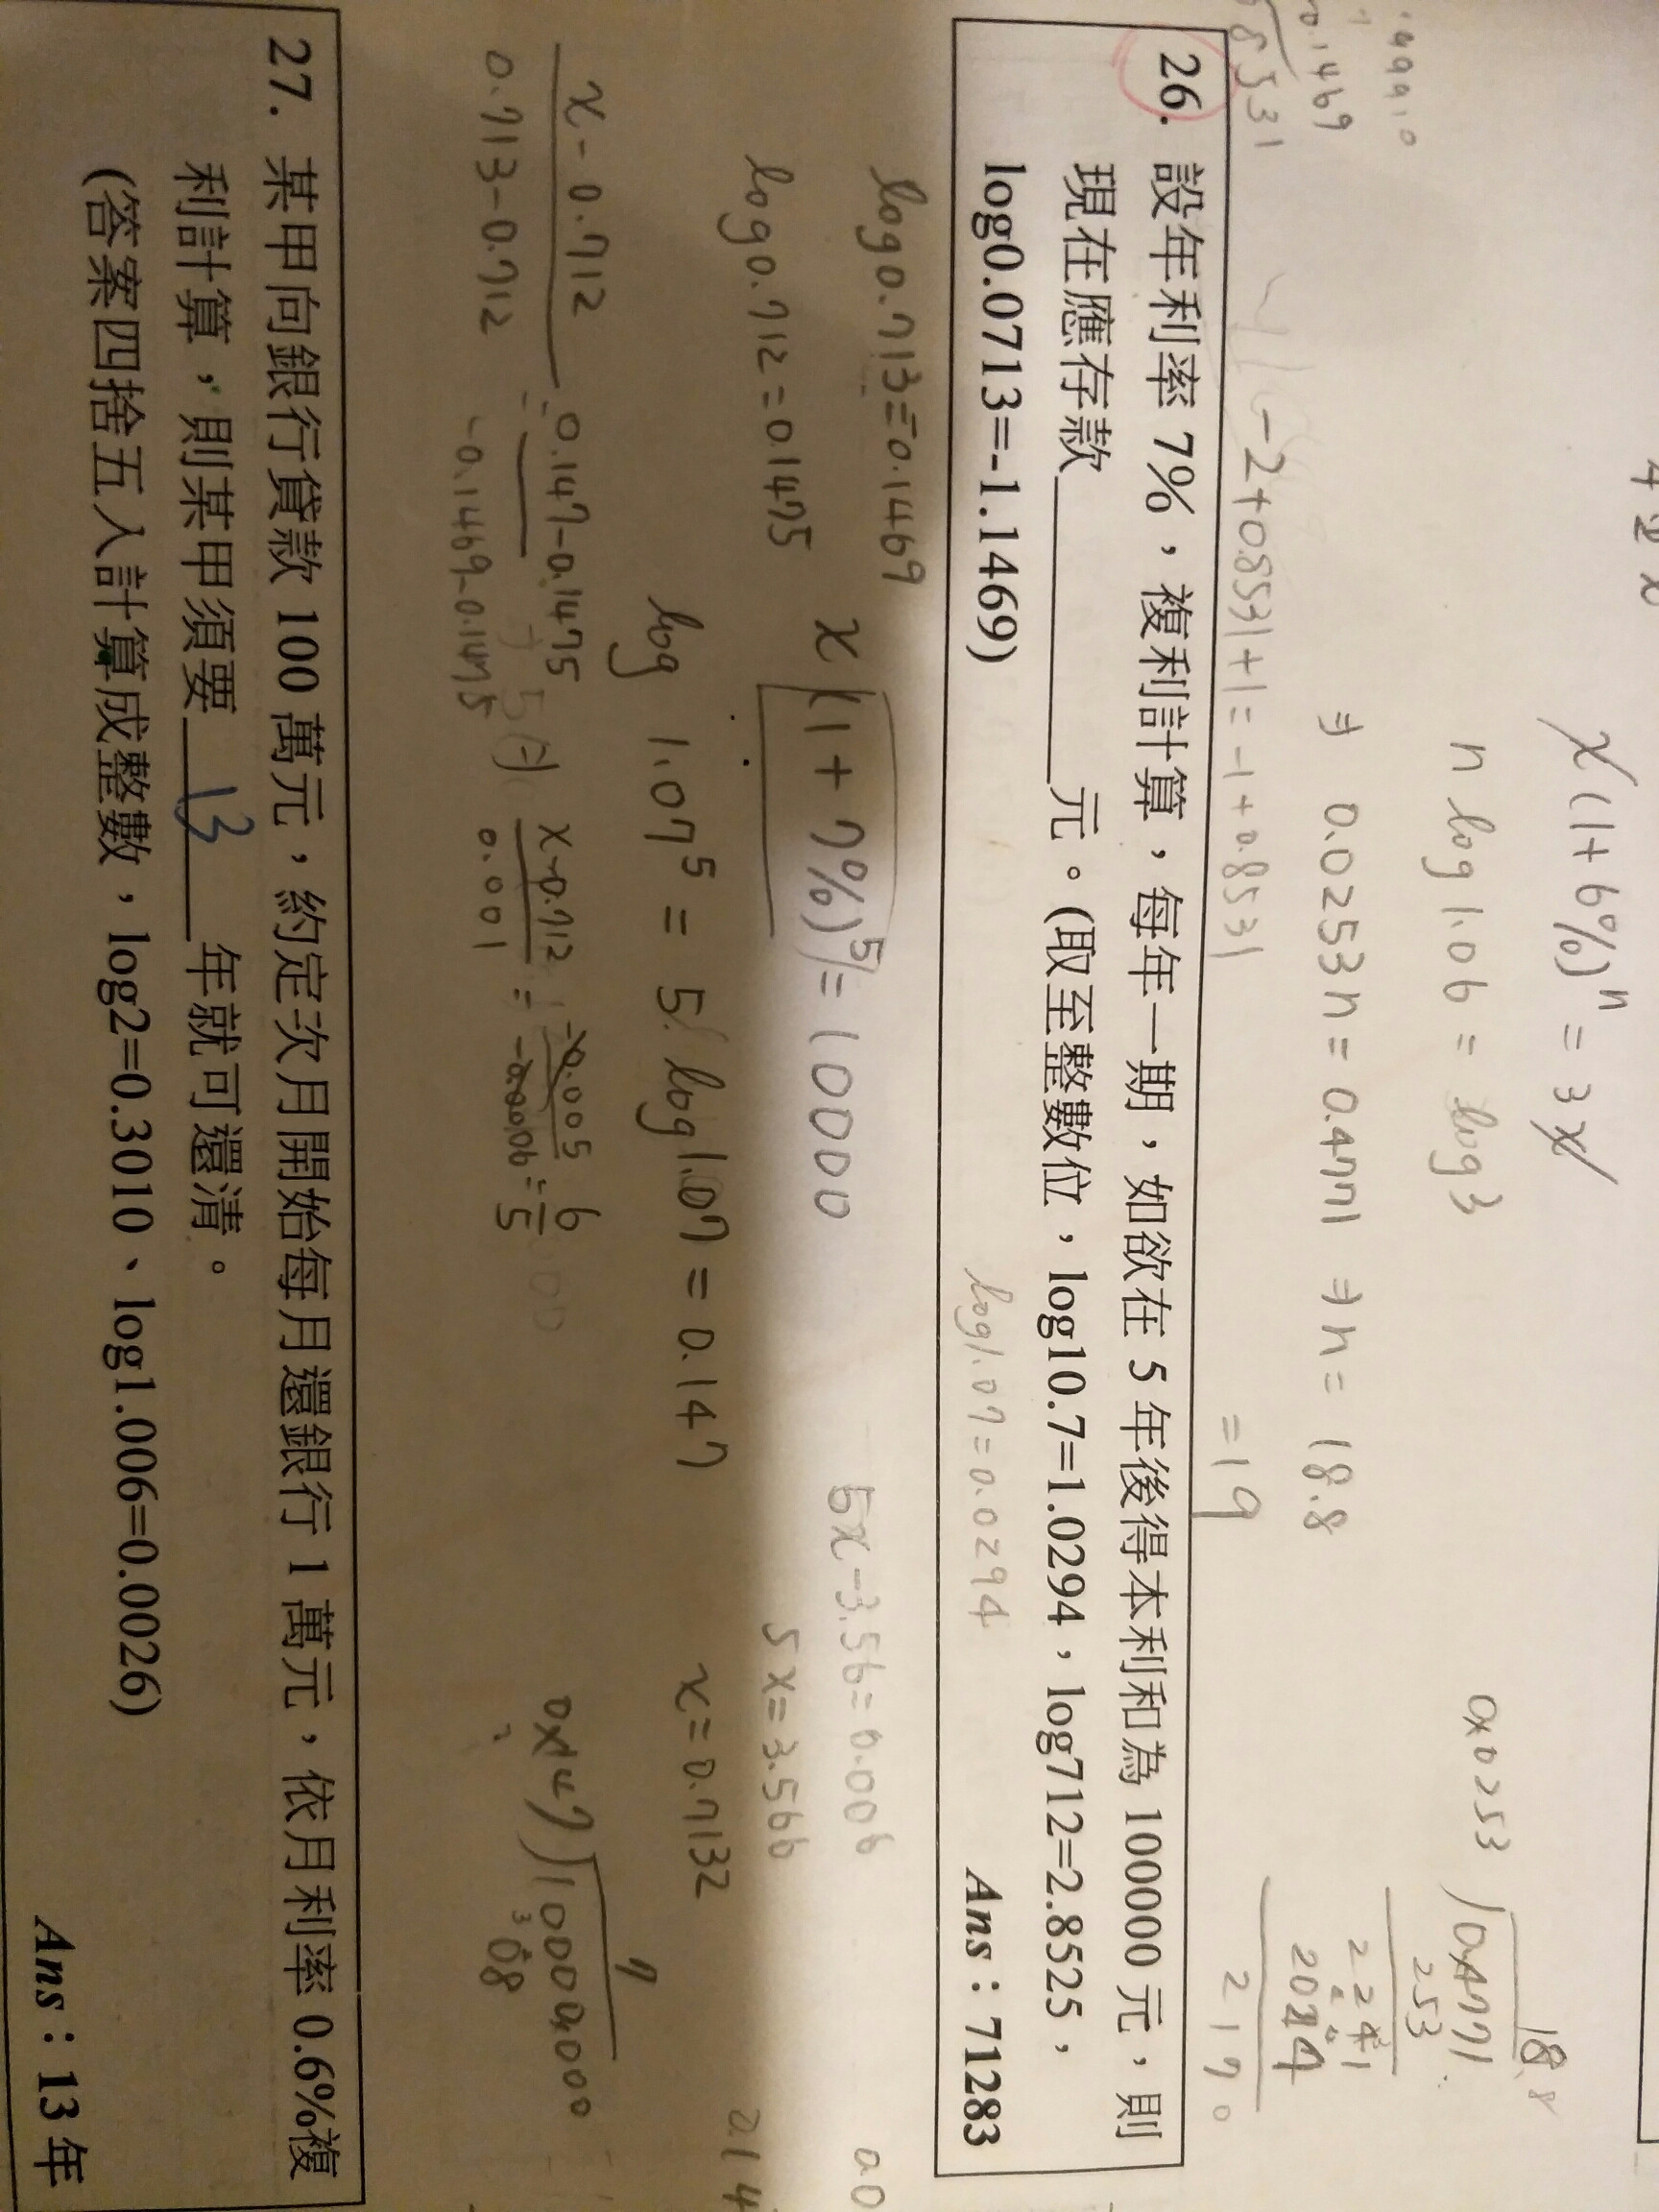 x(1+6%)ⁿ = 3x
n log1.06 = log3
0x0253
⇒ 0.0253n = 0.4771 ⇒ n = 18.8
= 19
0.1469
8531
-2+0.8531+1 = -1+0.8531
26. 設年利率 7%,複利計算,每年一期,如欲在 5 年後得本利和為 100000 元,則
現在應存款__________元。(取至整數位,log10.7=1.0294,log712=2.8525,
log0.0713=-1.1469)
Ans:71283
log1.07=0.0294
log0.713=0.1469
x(1+7%)⁵ = 10000
5x-3.56=0.006
log0.712=0.1475
5x=3.566
log 1.07⁵ = 5 log1.07 = 0.147
x=0.7132
x-0.712
0.713-0.712
= 0.147-0.1475
0.1469-0.1475
x-0.712
0.001
= 6
5
27. 某甲向銀行貸款 100 萬元,約定次月開始每月還銀行 1 萬元,依月利率 0.6%複
利計算,則某甲須要 13 年就可還清。
(答案四捨五入計算成整數,log2=0.3010、log1.006=0.0026)
Ans:13 年